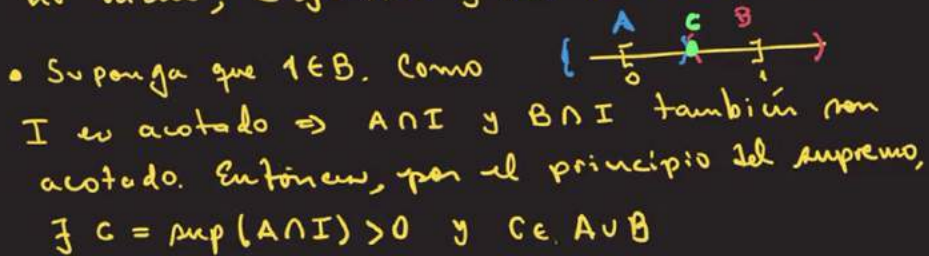 A C B
• Suponga que 1 ∈ B. Como { [ )( ] )
0 1
I es acotado ⇒ A∩I y B∩I también son
acotado. Entonces, por el principio del supremo,
∃ C = sup(A∩I) > 0 y C ∈ A∪B